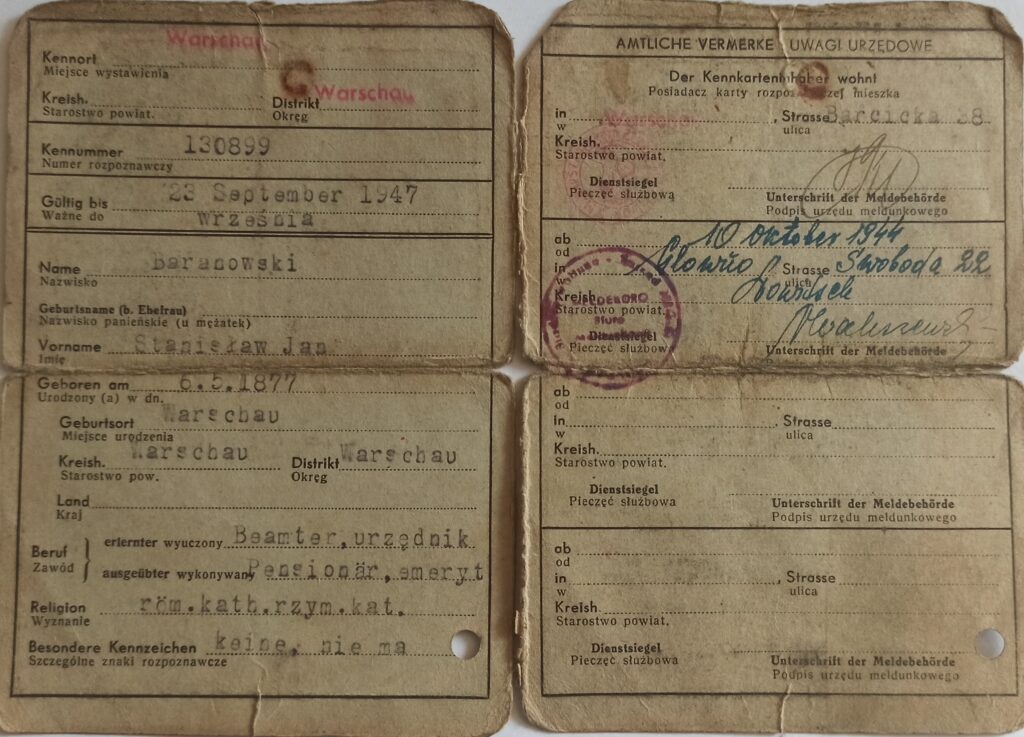 Warschau
Kennort
Miejsce wystawienia
Warschau
Kreish. Distrikt
Starostwo powiat. Okręg
Kennummer 130899
Numer rozpoznawczy
Gültig bis 23 September 1947
Ważne do września
Name Baranowski
Nazwisko
Geburtsname (b. Ehefrau)
Nazwisko panieńskie (u mężatek)
Vorname Stanisław Jan
Imię
Geboren am 6.5.1877
Urodzony (a) w dn.
Geburtsort Warschau
Miejsce urodzenia
Kreish. Warschau Distrikt Warschau
Starostwo pow. Okręg
Land
Kraj
Beruf erlernter wyuczony Beamter, urzędnik
Zawód ausgeübter wykonywany Pensionär, emeryt
Religion röm.kath.rzym.kat.
Wyznanie
Besondere Kennzeichen keine, nie ma
Szczególne znaki rozpoznawcze
AMTLICHE VERMERKE UWAGI URZĘDOWE
Der Kennkarteninhaber wohnt
Posiadacz karty rozpoznawczej mieszka
in Warschau, Strasse Barcicka 28
w ulica
Kreish.
Starostwo powiat.
Dienstsiegel Unterschrift der Meldebehörde
Pieczęć służbową Podpis urzędu meldunkowego
ab 10 Oktober 1944
od
in Głowno Strasse Swoboda 22
ulica
Kreish. Lowitsch
Starostwo powiat.
Dienstsiegel
Pieczęć służbow Unterschrift der Meldebehörde
ab
od
in , Strasse
w ulica
Kreish.
Starostwo powiat.
Dienstsiegel Unterschrift der Meldebehörde
Pieczęć służbowa Podpis urzędu meldunkowego
ab
od
in , Strasse
w ulica
Kreish.
Starostwo powiat.
Dienstsiegel Unterschrift der Meldebehörde
Pieczęć służbowa Podpis urzędu meldunkowego